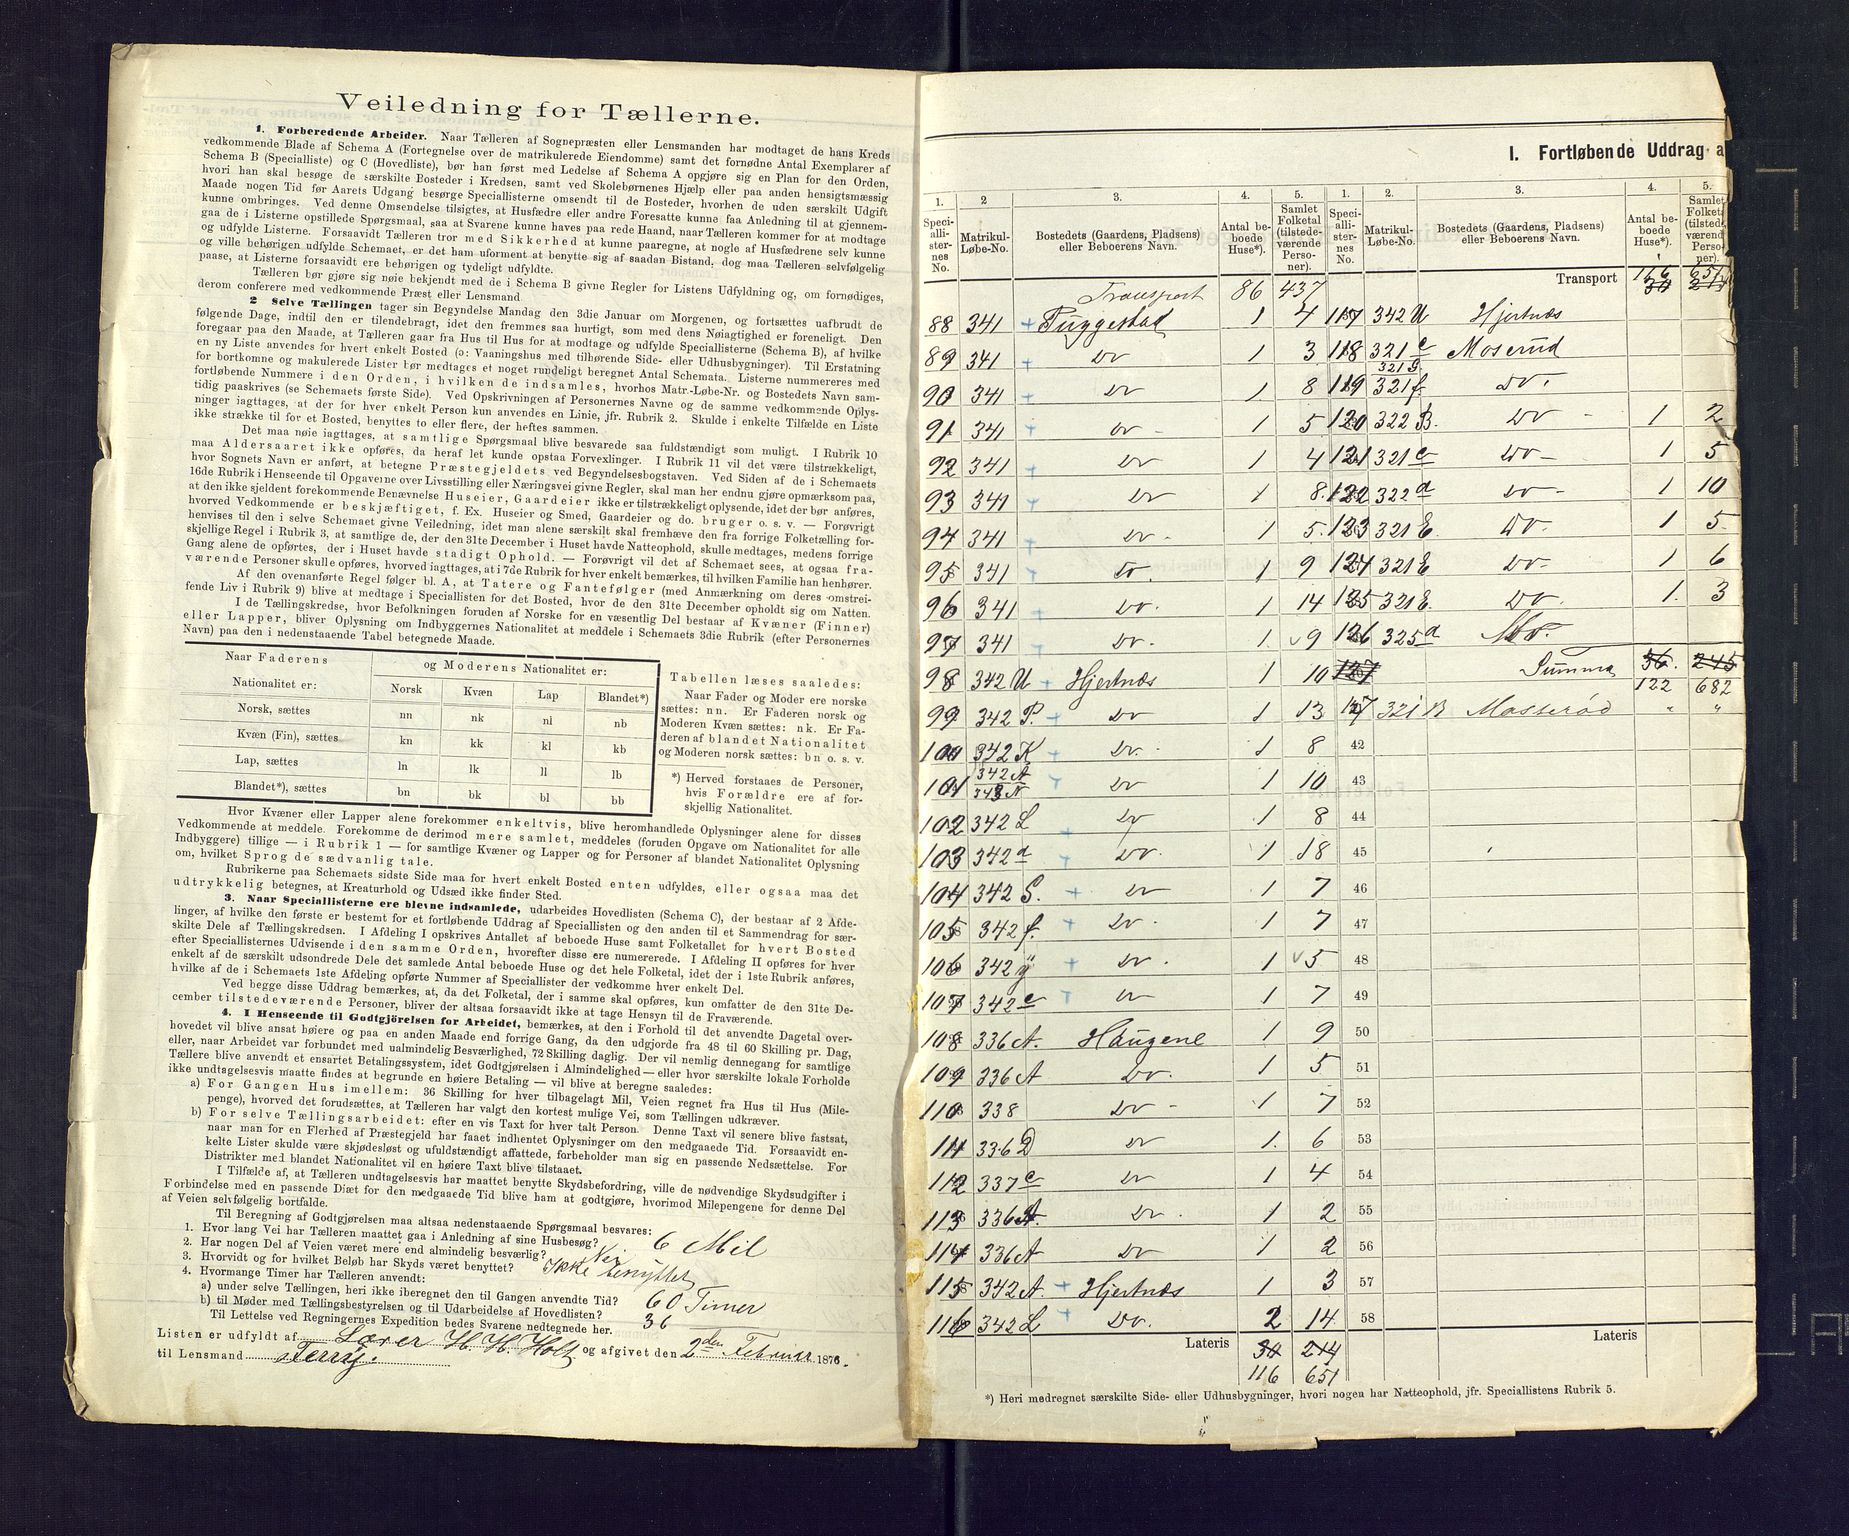 Veiledning for Tællerne.
1. Forberedende Arbeider. Naar Tælleren af Sognepræsten eller Lensmanden har modtaget de hans Kreds
vedkommende Blade af Schema A (Fortegnelse over de matrikulerede Eiendomme) samt det fornødne Antal Exemplarer af
Schema B (Specialliste) og C (Hovedliste), bør han først med Ledelse af Schema A opgjøre sig en Plan for den Orden,
hvori han skal besøge de særskilte Bosteder i Kredsen, samt ved Skolebørnenes Hjælp eller paa anden hensigtsmæssig
Maade nogen Tid før Aarets Udgang besørge Speciallisterne omsendt til de Bosteder, hvorhen de uden særskilt Udgift
kunne ombringes. Ved denne Omsendelse tilsigtes, at Husfædre eller andre Foresatte kunne faa Anledning til at gjennem-
gaa de i Listerne opstillede Spørgsmaal, saa at Svarene kunne haves paa rede Haand, naar Tælleren kommer for at modtage
og udfylde Listerne. Forsaavidt Tælleren tror med Sikkerhed at kunne paaregne, at nogle af Husfædrene selv kunne
og ville behørigen udfylde Schemaet, er det ham uforment at benytte sig af saadan Bistand, dog maa Tælleren selvfølgelig
paase, at Listerne forsaavidt ere behørigen og tydeligt udfyldte.
Tælleren bør gjøre sig nøie bekjendt med de i Schema B givne Regler for Listens Udfyldning og, om fornødiges,
derom conferere med vedkommende Præst eller Lensmand.
2 Selve Tællingen tager sin Begyndelse Mandag den 3die Januar om Morgenen, og fortsættes uafbrudt de
følgende Dage, indtil den er tilendebragt, idet den fremmes saa hurtigt, som med dens Nøiagtighed er foreneligt. Den
foregaar paa den Maade, at Tælleren gaar fra Hus til Hus for at modtage og udfylde Speciallisterne (Schema B), af hvilke
en ny Liste anvendes for hvert enkelt Bosted (ɔ: Vaaningshus med tilhørende Side- eller Udhusbygninger). Til Erstatning
for bortkomne og makulerede Lister bør medtages et noget rundeligt beregnet Antal Schemata. Listerne nummereres med
fortløbende Numere i den Orden, i hvilken de indsamles, hvorhos Matr.-Løbe-Nr. og Bostedets Navn sam-
tidig paaskrives (se Schemaets første Side). Ved Opskrivningen af Personernes Navne og de samme vedkommende Oplys-
ninger iagttages, at der for hver enkelt Person kun anvendes en Linie, jfr. Rubrik 2. Skulde i enkelte Tilfælde en Liste
ikke strække til for et Bosted, benyttes to eller flere, der heftes sammen.
Det maa nøie iagttages, at samtlige Spørgsmaal blive besvarede saa fuldstændigt som muligt. I Rubrik 10
maa Aldersaaret ikke opføres, da heraf let kunde opstaa Forvexlinger. I Rubrik 11 vil det være tilstrækkeligt,
hvor Sognets Navn er anført, at betegne Præstegjeldets ved Begyndelsesbogstaven. Ved Siden af de i Schemaets
16de Rubrik i Henseende til Opgaverne over Livsstilling eller Næringsvei givne Regler, skal man her endnu gjøre opmærksom paa,
at den ikke sjeldent forekommende Benævnelse Huseier, Gaardeier ikke er tilstrækkeligt oplysende, idet der bør anføres,
hvorved Vedkommende er beskjæftiget, f. Ex. Huseier og Smed, Gaardeier og do. bruger o. s. v. — Forøvrigt
henvises til den i selve Schemaet givne Veiledning, idet man alene særskilt skal fremhæve den fra forrige Folketælling for-
skjellige Regel i Rubrik 3, at samtlige de, der den 31te December i Huset havde Natteophold, skulle medtages, medens forrige
Gang alene de opførtes, der i Huset havde stadigt Ophold. — Forøvrigt vil det af Schemaet sees, at ogsaa fra-
værende Personer skulle opføres, hvorved iagttages, at i 7de Rubrik for hver enkelt bemærkes, til hvilken Familie han henhører.
Af den ovenanførte Regel følger bl. A, at Tatere og Fantefølger (med Anmærkning om deres omstrei-
fende Liv i Rubrik 9) blive at medtage i Speciallisten for det Bosted, hvor de den 31te December opholdt sig om Natten.
I de Tællingskredse, hvor Befolkningen foruden af Norske for en væsentlig Del bestaar af Kvæner (Finner)
eller Lapper, bliver Oplysning om Indbyggernes Nationalitet at meddele i Schemaets 3die Rubrik (efter Personernes
Navn) paa den i nedenstaaende Tabel betegnede Maade.
Naar Faderens Nationalitet er: og Moderens Nationalitet er:
Norsk Kvæn Lap Blandet*)
Norsk, sættes nn nk nl nb
Kvæn (Fin), sættes kn kk kl kb
Lap, sættes ln lk ll lb
Blandet*), sættes bn bk bl bb
Tabellen læses saaledes:
Naar Fader og Moder ere norske
sættes: nn. Er Faderen norsk og
Moderen Kvæn sættes: nk. Er Fa-
deren af blandet Nationalitet
og Moderen norsk sættes: bn o. s. v.
*) Herved forstaaes de Personer,
hvis Forældre ere af for-
skjellig Nationalitet.
Hvor Kvæner eller Lapper alene forekommer enkeltvis, blive heromhandlede Oplysninger alene for disses
Vedkommende at meddele. Forekomme de derimod mere samlet, meddeles (foruden Opgave om Nationalitet for alle
Indbyggere) tillige — i Rubrik 1 — for samtlige Kvæner og Lapper og for Personer af blandet Nationalitet Oplysning
om, hvilket Sprog de sædvanlig tale.
Rubrikerne paa Schemaets sidste Side maa for hvert enkelt Bosted enten udfyldes, eller ogsaa maa det
udtrykkelig betegnes, at Kreaturhold og Udsæd ikke finder Sted.
3. Naar Speciallisterne ere blevne indsamlede, udarbeides Hovedlisten (Schema C), der bestaar af 2 Afde-
linger, af hvilke den første er bestemt for et fortløbende Uddrag af Speciallisten og den anden til et Sammendrag for sær-
skilte Dele af Tællingskredsen. I Afdeling I opskrives Antallet af beboede Huse samt Folketallet for hvert Bosted
efter Speciallisternes Udvisende i den samme Orden, hvorefter disse ere numererede. I Afdeling II opføres for hver
enkelt af de særskilt udsondrede Dele det samlede Antal beboede Huse og det hele Folketal, idet der i 1ste Rubrik anføres,
hvilke af de i Schemaets 1ste Afdeling opførte Nummer af Specialister der vedkomme hver enkelt Del.
Ved begge disse Uddrag bemærkes, at, da det Folketal, der i samme skal opføres, kun omfatter de den 31te De-
cember tilstedeværende Personer, bliver der altsaa forsaavidt ikke at tage Hensyn til de Fraværende.
4. I Henseende til Godtgjörelsen for Arbeidet, bemærkes, at den i Forhold til det anvendte Dagetal over-
hovedet vil blive ansat høiere og paa en anden Maade end forrige Gang, da den udgjorde fra 48 til 60 Skilling pr. Dag,
eller, naar Arbeidet var forbundet med ualmindelig Besværlighed, 72 Skilling daglig. Der vil nemlig dennegang for samtlige
Tællere blive anvendt et ensartet Betalingssystem, idet Godtgjörelsen i Almindelighed — eller hvor særskilte lokale Forholde
ikke undtagelsesvis maatte findes at begrunde en høiere Betaling — vil blive at beregne saaledes:
a) For Gangen Hus imellem: 36 Skilling for hver tilbagelagt Mil, Veien regnet fra Hus til Hus (Mile-
penge), hvorved det forudsættes, at Tælleren har valgt den kortest mulige Vei, som Tællingen udkræver.
b) For selve Tællingsarbeidet: efter en vis Taxt for hver talt Person. Denne Taxt vil senere blive fastsat,
naar man for en Flerhed af Præstegjeld har faaet indhentet Oplysninger om den medgaaede Tid. Forsaavidt en-
kelte Lister skulde være skjødesløst og ufuldstændigt affattede, forbeholder man sig en passende Nedsættelse. For
Distrikter med blandet Nationalitet vil en høiere Taxt blive tilstaaet.
I Tilfælde af, at Tælleren undtagelsesvis har maattet benytte Skydsbefordring, ville de nødvendige Skydsudgifter i
Forbindelse med en passende Diæt for den medgaaede Tid blive ham at godtgjøre, hvorimod Milepengene for denne Del
af Veien selvfølgelig bortfalde.
Til Beregning af Godtgjørelsen maa altsaa nedenstaaende Spørgsmaal besvares:
1. Hvor lang Vei har Tælleren maattet gaa i Anledning af sine Husbesøg? 6 Mil
2. Har nogen Del af Veien været mere end almindelig besværlig? Nei
3. Hvorvidt og for hvilket Beløb har Skyds været benyttet? Ikke benyttet
4. Hvormange Timer har Tælleren anvendt:
a) under selve Tællingen, heri ikke iberegnet den til Gangen anvendte Tid? 60 Timer
b) til Møder med Tællingsbestyrelsen og til Udarbeidelse af Hovedlisten? 36
Til Lettelse ved Regningernes Expedition bedes Svarene nedtegnede her.
Listen er udfyldt af Lærer H. H. Holt og afgivet den 2den Februar 1876.
til Lensmand Ferry.
I. Fortløbende Uddrag a
1. 2 3. 4. 5. 1. 2. 3. 4. 5.
Speciallisternes No. Matrikul-Løbe-No. Bostedets (Gaardens, Pladsens) eller Beboerens Navn. Antal beboede Huse*). Samlet Folketal (tilstedeværende Personer). Speciallisternes No. Matrikul-Løbe-No. Bostedets (Gaardens, Pladsens) eller Beboerens Navn. Antal beboede Huse*). Samlet Folketal (tilstedeværende Personer).
Transport 86 437 Transport 116 651
88 341 + Tuggestad 1 4 117 342 U Hjertnæs
89 341 + Do 1 3 118 321 c Moserud
90 341 + Do 1 8 119 321 G 321 f. Do.
91 341 + Do - 1 5 120 322 B. Do - 1 2
92 341 + Do 1 4 121 321 c Do - 1 5
93 341 + Do 1 8. 122 322 d Do - 1 10
94 341 + Do - 1 5. 123 321 E Do. 1 5
95 341 + Do. 1 9 124 321 E Do. 1 6
96 341 + Do. 1 14 125 321 E. Do. 1. 3
97 341 + Do. 1. 9 126 325 d Do.
98 342 U + Hjertnæs 1 10 127 Summa 36. 245
122 682
99 342 P. + Do 1 13 127 321 B Mosserød " "
100 342 K + Do. 1 8 42
101 342 A 343 N + Do 1 10 43
102 342 L Do 1 8 44
103 342 d + Do. 1 18 45
104 342 S. + Do 1 7 46
105 342 f. + Do. 1 7 47
106 342 y + Do. 1 5 48
107 342 c + Do 1 7 49
108 336 A. Haugene 1 9 50
109 336 A Do. 1 5 51
110 338 Do - 1 7 52
111 336 D Do 1. 6 53
112 337 c Do 1 4 54
113 336 A. Do. 1 2 55
114 336 A Do 1 2 56
115 342 A. + Hjertnæs 1 3 57
116 342 L + Do. 2 14 58
Lateris 30 214 Lateris
116 651
*) Heri medregnet særskilte Side- eller Udhusbygninger, hvori nogen har Natteophold, jfr. Speciallistens Rubrik 5.